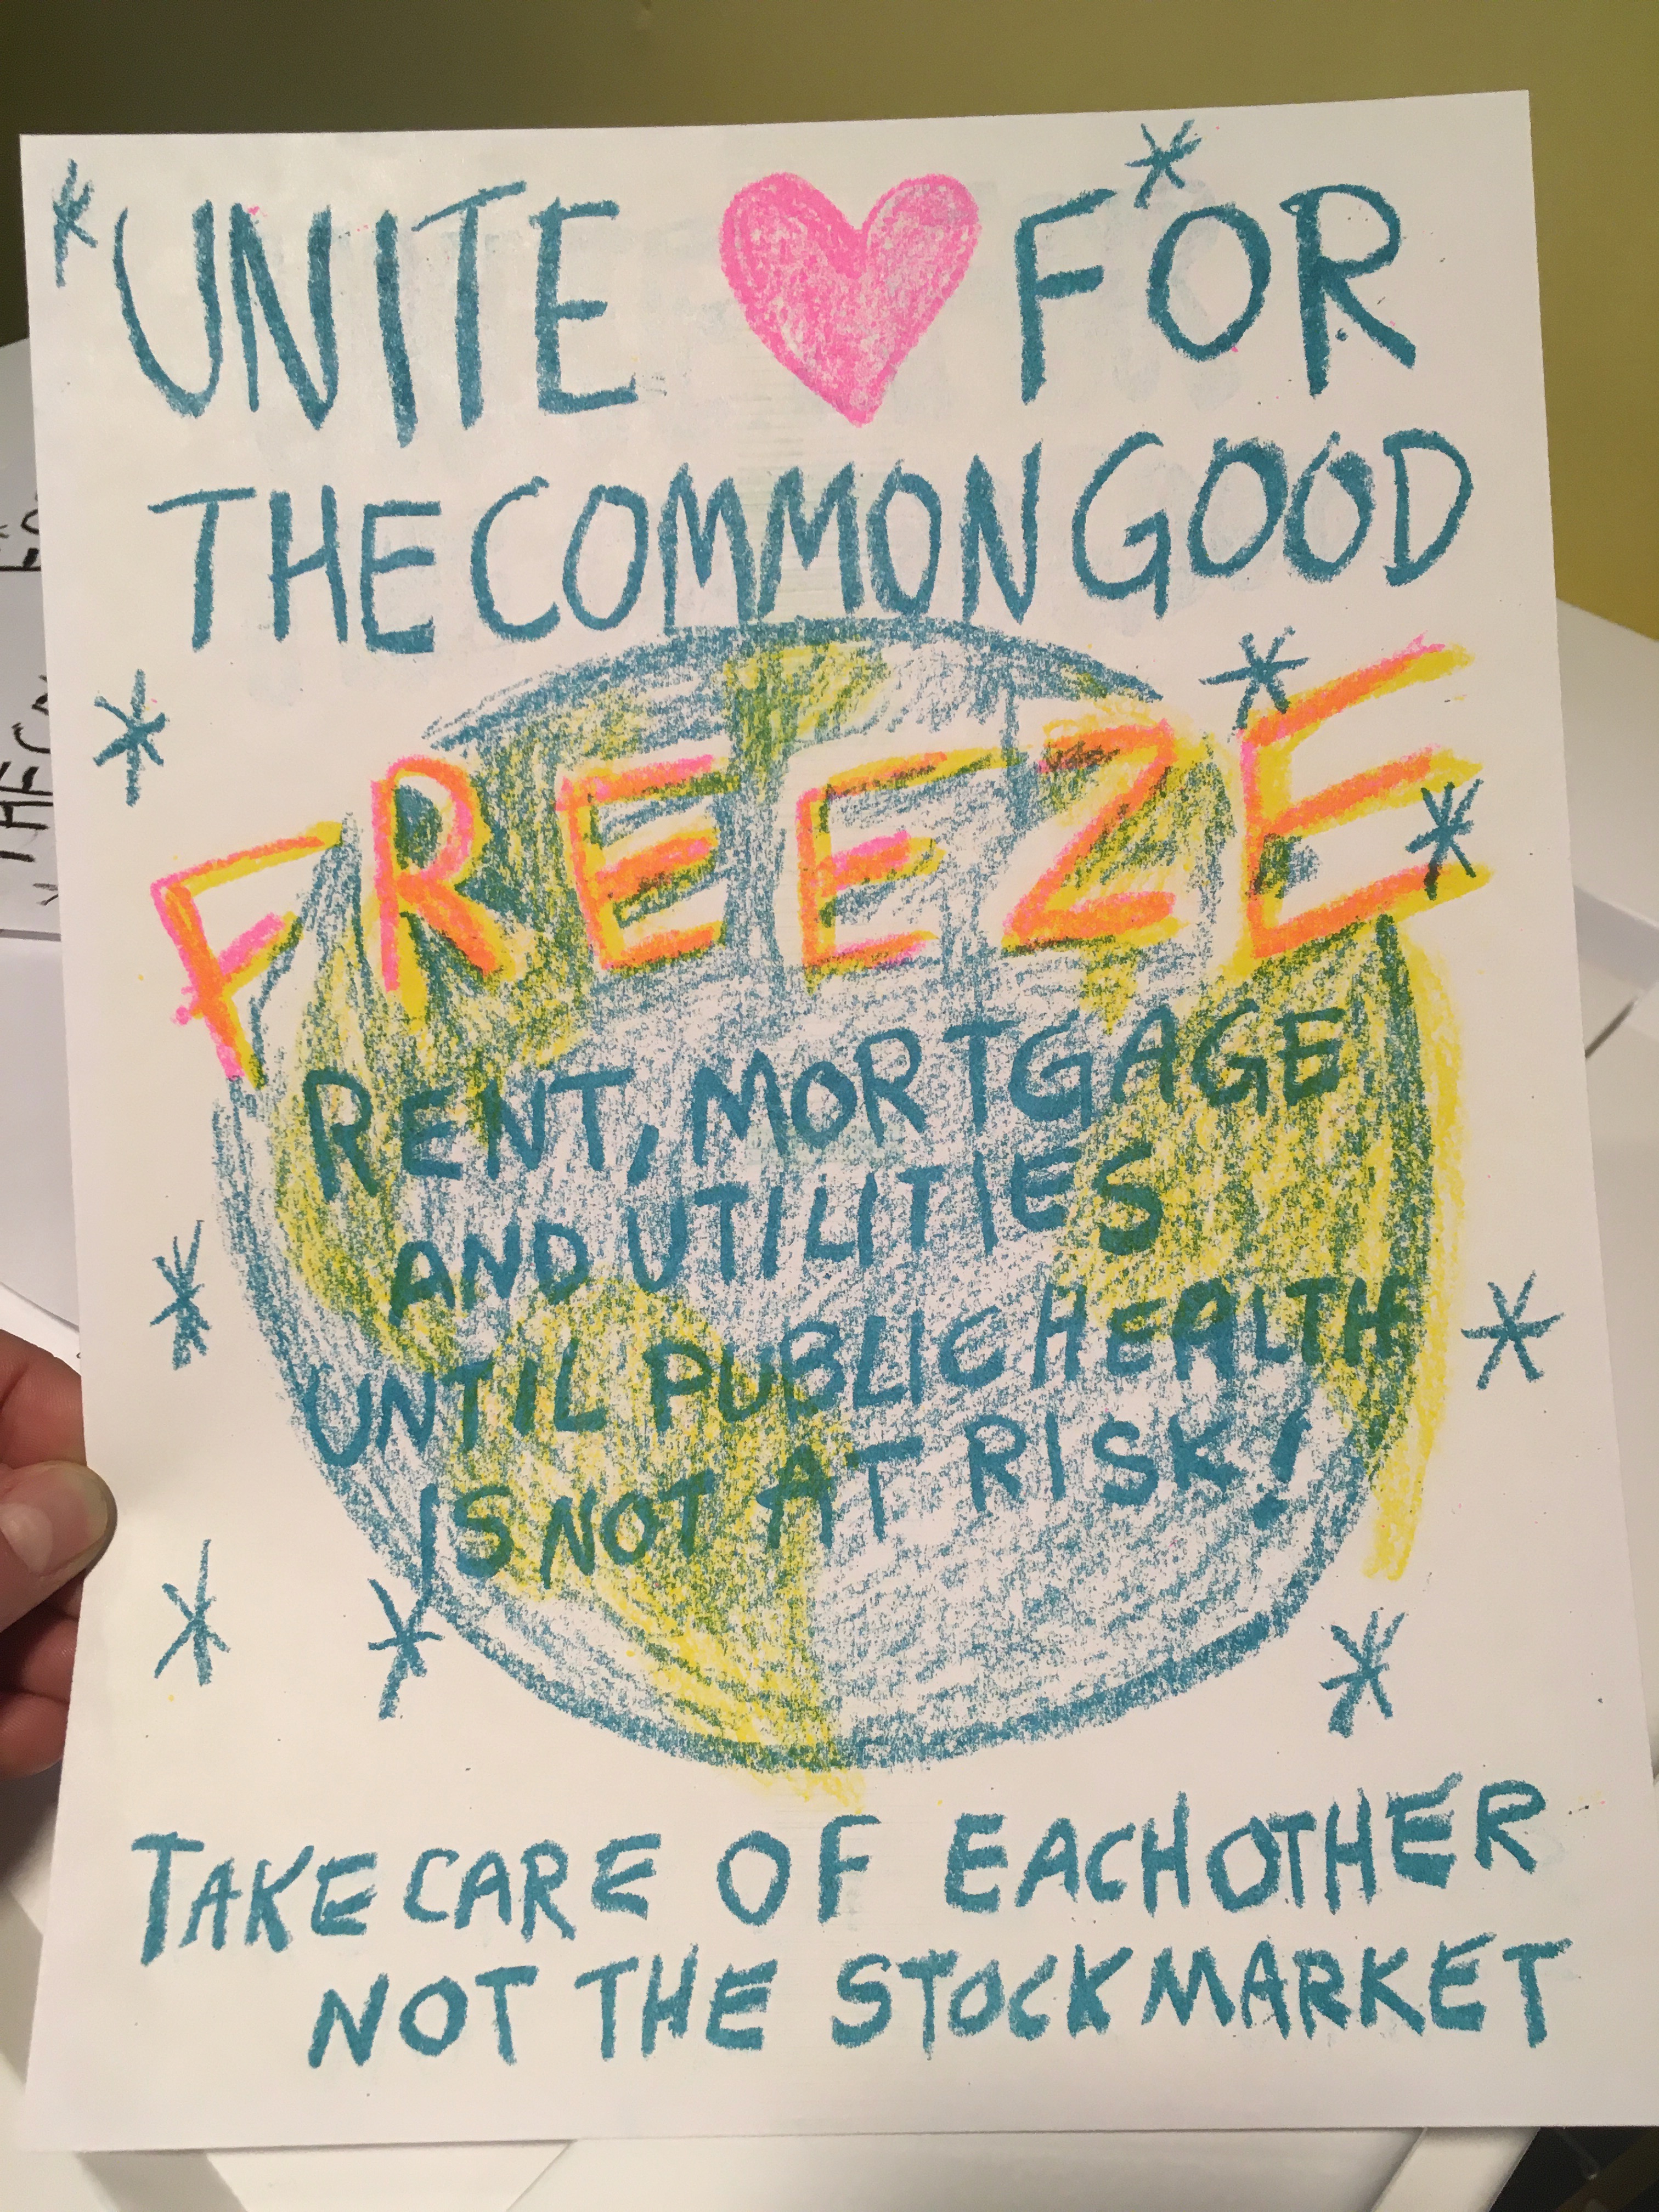 UNITE FOR
THE COMMON GOOD
FREEZE
RENT, MORTGAGE
AND UTILITIES
UNTIL PUBLIC HEALTH
IS NOT AT RISK!
TAKE CARE OF EACH OTHER
NOT THE STOCK MARKET